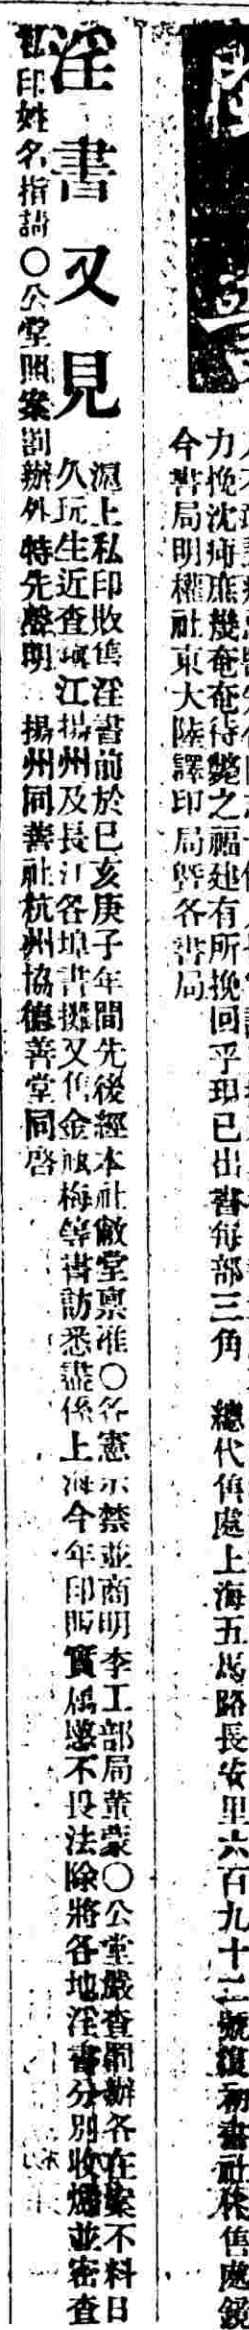 力挽沈疴庶幾奄奄待斃之福建有所挽回乎現已出書每部三角 總代售處上海五馬路長安里六百九十二號復初書社秌售處鏡
今書局明權社東大陸譯印局曁各書局
淫書又見
滬上私印收售淫書前於己亥庚子年間先後經本社敝堂禀准○各憲示禁並商明李工部局董蒙○公堂嚴查罰辦各在案不料日
久玩生近查鎭江揚州及長江各埠書攤又售金瓶梅等書訪悉盡係上海今年印販實屬愍不畏法除將各地淫書分别收燬並密查
私印姓名指請○公堂照案罰辦外特先聲明 揚州同善社杭州協德善堂同啓